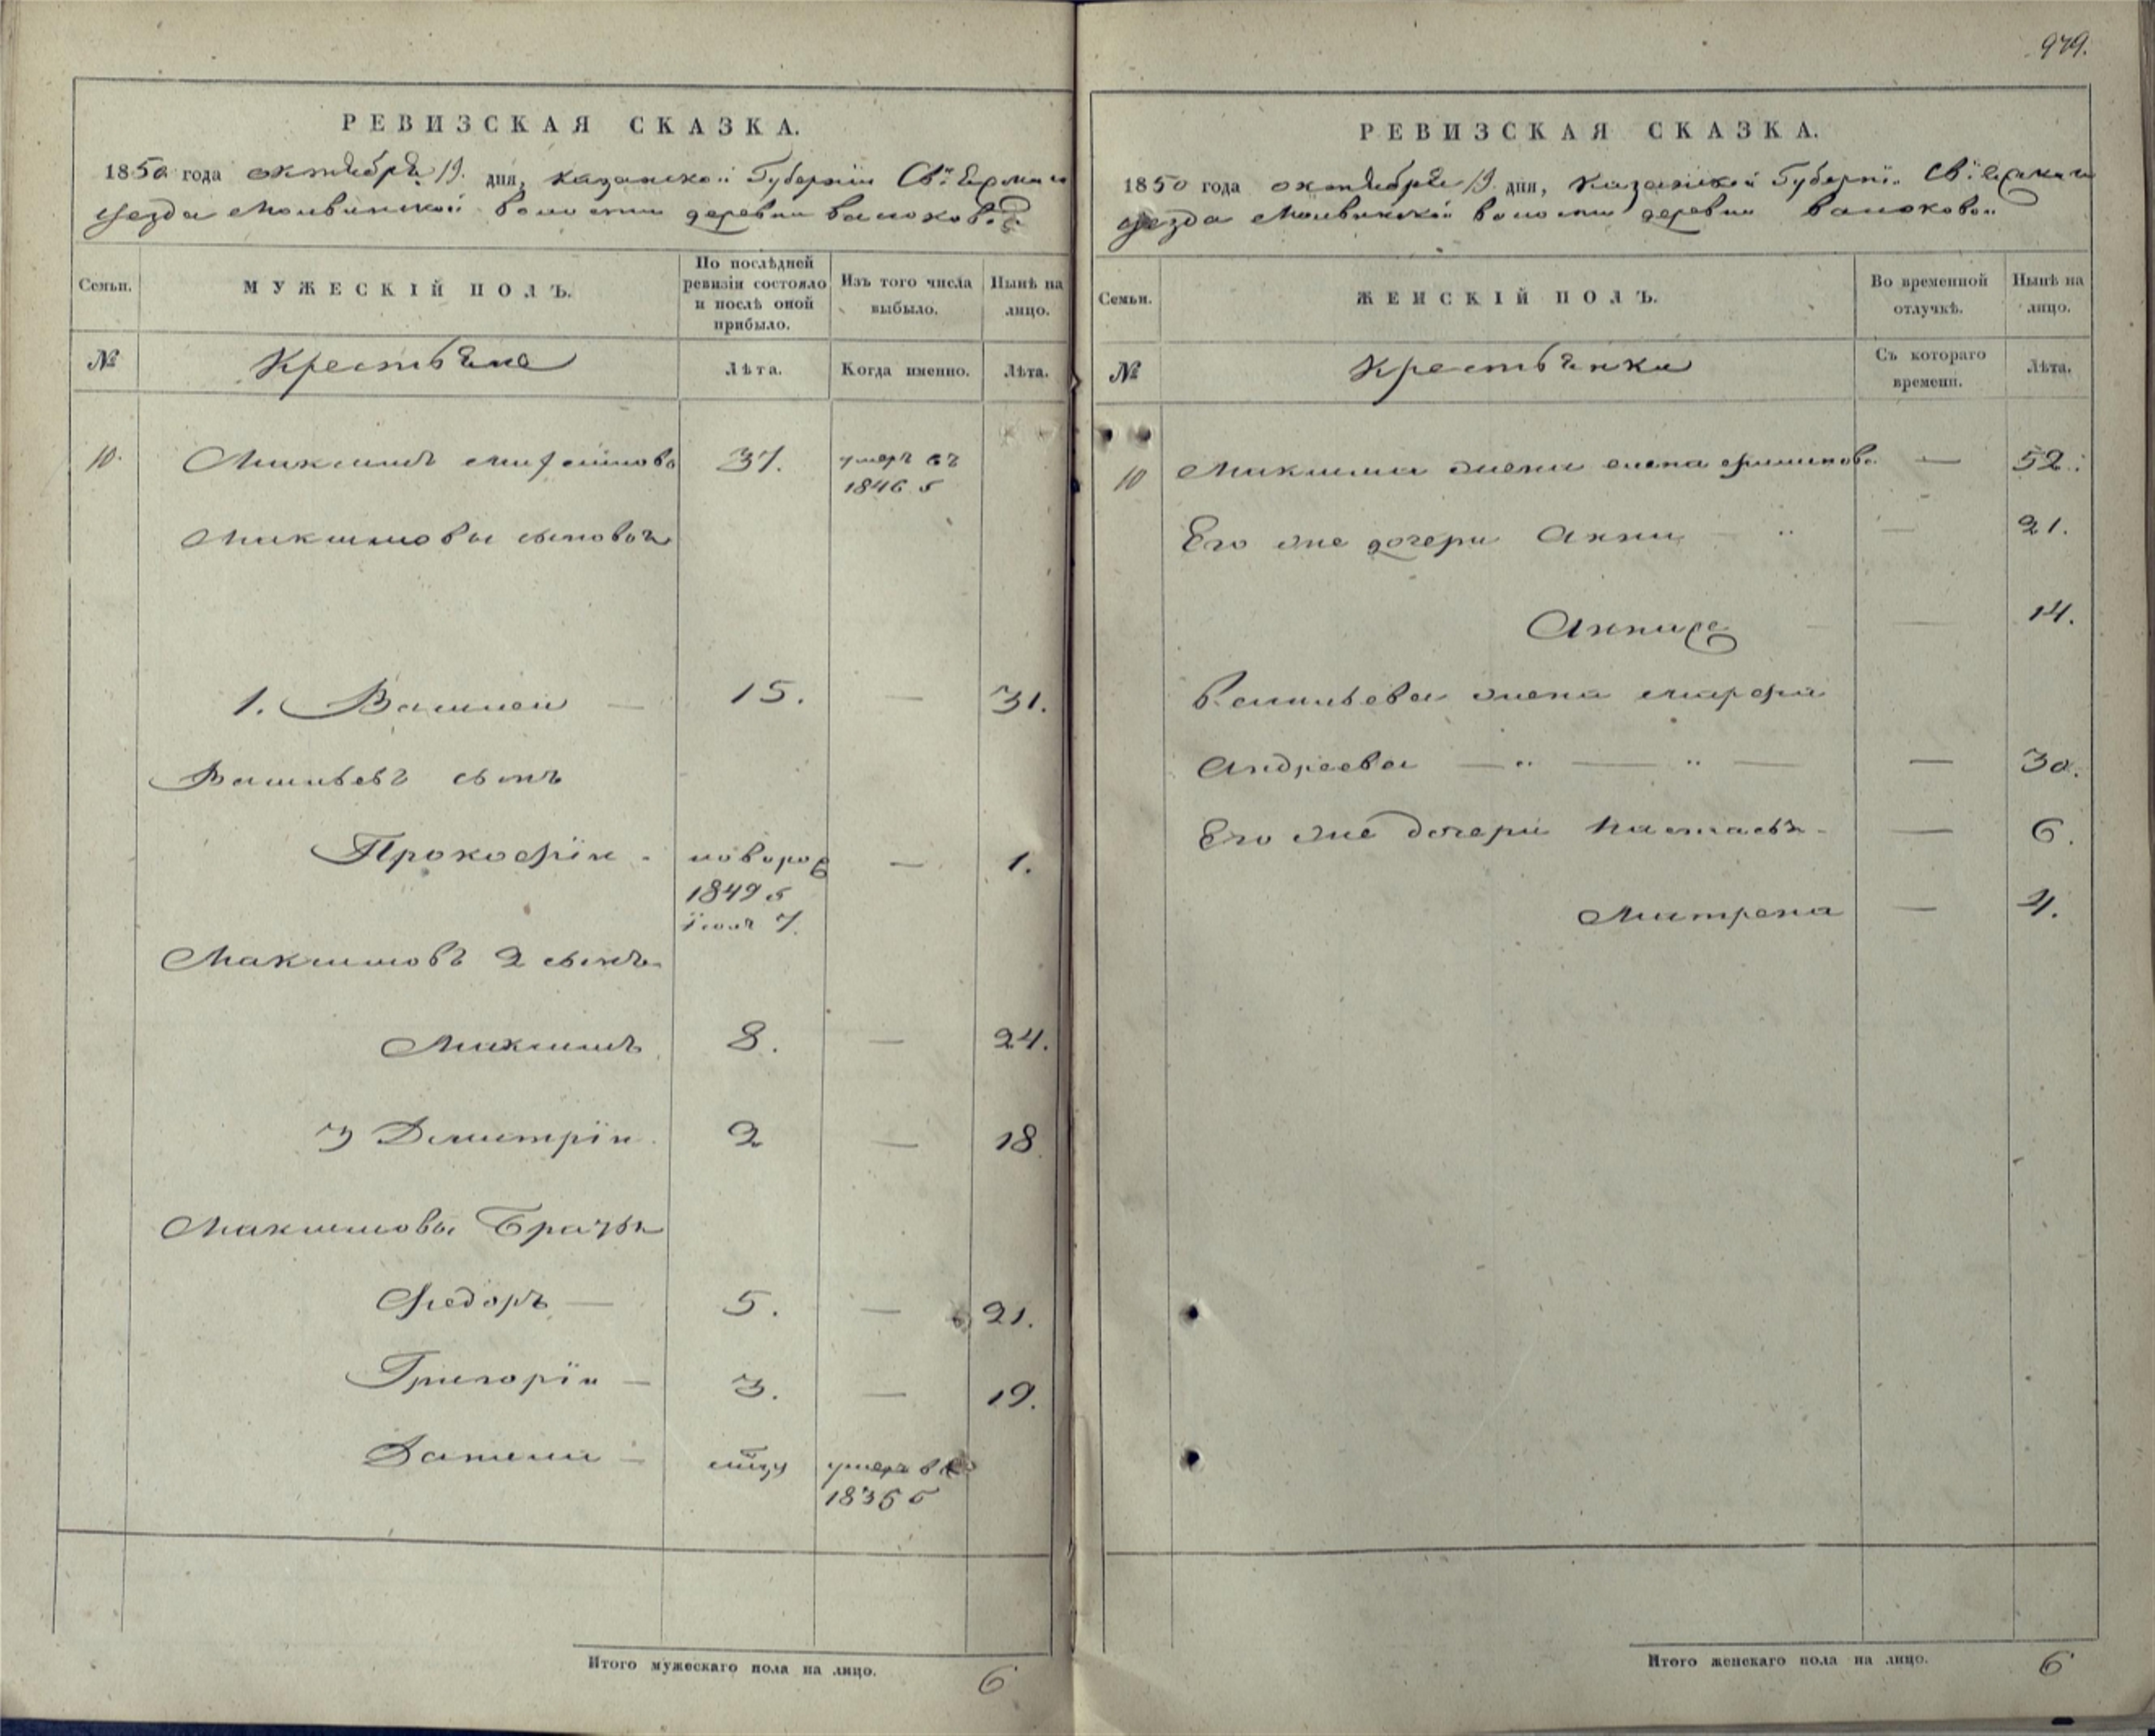 РЕВИЗСКАЯ СКАЗКА.
1850 года октября 19. дня, Казанской Губернии Свіяжскаго
уезда Молвинской волости деревни
Семьи.
МУЖЕСКІЙ ПОЛЪ.
По послѣдней ревизіи состояло и послѣ оной прибыло.
Изъ того числа выбыло.
Нынѣ на лицо.
№
Крестьяне
Лѣта.
Когда именно.
Лѣта.
10. Максимъ 37. умеръ въ
1846 г
Максимовы сыновья
1. Василей — 15. — 31.
Васильевъ сынъ
Прокофій - новорож — 1.
1849 г
Іюля 7.
Максимовъ 2 сынъ
Максимъ 8. — 24.
3 Димитрій 2 — 18
Максимовы Братья
Федоръ — 5. — 21.
Григорій — 3. — 19.
умеръ в
1836 г
Итого мужескаго пола на лицо. 6
979.
РЕВИЗСКАЯ СКАЗКА.
1850 года октября 19 дня, Казанской Губерні. Свіяжскаго
уезда Молвинской волости деревни
Семьи.
ЖЕНСКІЙ ПОЛЪ.
Во временной отлучкѣ.
Нынѣ на лицо.
№
Крестьянки
Съ котораго времени.
Лѣта.
10 Максима жена елена — 52.
Его же дочери Анна — 21.
14.
Васильева жена марфа
Андреева — — 30.
Его же дочери Настасья — 6.
Матрена — 4.
Итого женскаго пола на лицо. 6